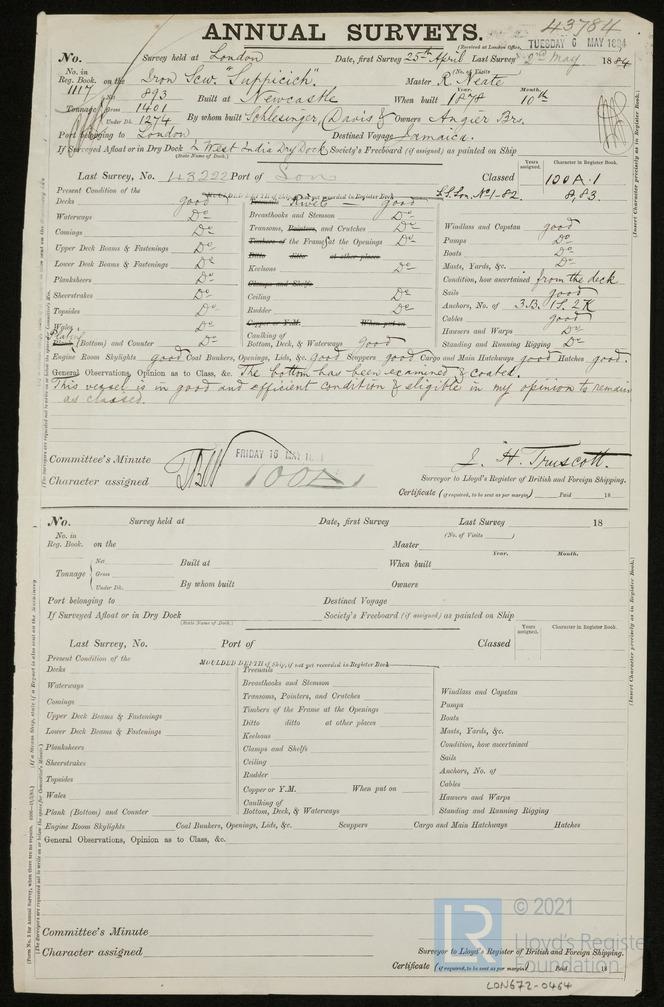 43784
ANNUAL SURVEYS.
(Received at London Office, TUESDAY 6 MAY 1884
No. Survey held at London Date, first Survey 25th April Last Survey 2nd May 1884
(No. of Visits )
No. in Reg. Book. 1117 on the Iron Scw. "Suppicich". Master R. Neate
Year. Month.
Tonnage Net 893 Built at Newcastle When built 1878 10th
Gross 1401
Under Dk. 1274 By whom built Schlesinger, Davis & Owners Angier Brs.
Port belonging to London Destined Voyage Jamaica.
If Surveyed Afloat or in Dry Dock In West India Dry Dock Society's Freeboard (if assigned) as painted on Ship
(State Name of Dock.)
Years assigned. Character in Register Book.
Last Survey, No. 43222 Port of Lon Classed 100A.1
S.S.Lon. No 1-82. 8,83.
Present Condition of the
Decks good Rivets good
Waterways Do Breasthooks and Stemson Do
Comings Do Transoms, Pointers, and Crutches Do Windlass and Capstan good
Upper Deck Beams & Fastenings Do Timbers of the Frames at the Openings Do Pumps Do
Lower Deck Beams & Fastenings Do Ditto ditto at other places Boats Do
Planksheers Do Keelsons Do Masts, Yards, &c. Do
Sheerstrakes Do Clamps and Shelfs Condition, how ascertained from the deck
Topsides Do Ceiling Do Sails good
Wales Do Rudder Do Anchors, No. of 3.B. 1S. 2K
Copper or Y.M. When put on Cables good
Plating (Bottom) and Counter Do Caulking of Bottom, Deck, & Waterways good Hawsers and Warps Do
Standing and Running Rigging Do
Engine Room Skylights good Coal Bunkers, Openings, Lids, &c. good Scuppers good Cargo and Main Hatchways good Hatches good.
General Observations, Opinion as to Class, &c. The bottom has been examined & coated.
This vessel is in good and efficient condition & eligible in my opinion to remain
as classed.
Committee's Minute FRIDAY 16 MAY 1884
Character assigned 100A1
J. H. Truscott.
Surveyor to Lloyd's Register of British and Foreign Shipping.
Certificate (if required, to be sent as per margin) Paid 18
No. Survey held at Date, first Survey Last Survey 18
(No. of Visits )
No. in Reg. Book. on the Master
Year. Month.
Tonnage Net Built at When built
Gross
Under Dk. By whom built Owners
Port belonging to Destined Voyage
If Surveyed Afloat or in Dry Dock Society's Freeboard (if assigned) as painted on Ship
(State Name of Dock.)
Years assigned. Character in Register Book.
Last Survey, No. Port of Classed
Present Condition of the MOULDED DEPTH of Ship, if not yet recorded in Register Book
Decks Treenails
Waterways Breasthooks and Stemson
Comings Transoms, Pointers, and Crutches Windlass and Capstan
Upper Deck Beams & Fastenings Timbers of the Frame at the Openings Pumps
Lower Deck Beams & Fastenings Ditto ditto at other places Boats
Planksheers Keelsons Masts, Yards, &c.
Sheerstrakes Clamps and Shelfs Condition, how ascertained
Topsides Ceiling Sails
Wales Rudder Anchors, No. of
Copper or Y.M. When put on Cables
Plank (Bottom) and Counter Caulking of Bottom, Deck, & Waterways Hawsers and Warps
Standing and Running Rigging
Engine Room Skylights Coal Bunkers, Openings, Lids, &c. Scuppers Cargo and Main Hatchways Hatches
General Observations, Opinion as to Class, &c.
Committee's Minute
Character assigned Surveyor to Lloyd's Register of British and Foreign Shipping.
Certificate (if required, to be sent as per margin) Paid 18
LR © 2021
Lloyd's Register
Foundation
LON672-0464
(Insert Character precisely as in Register Book.)
(Insert Character precisely as in Register Book.)